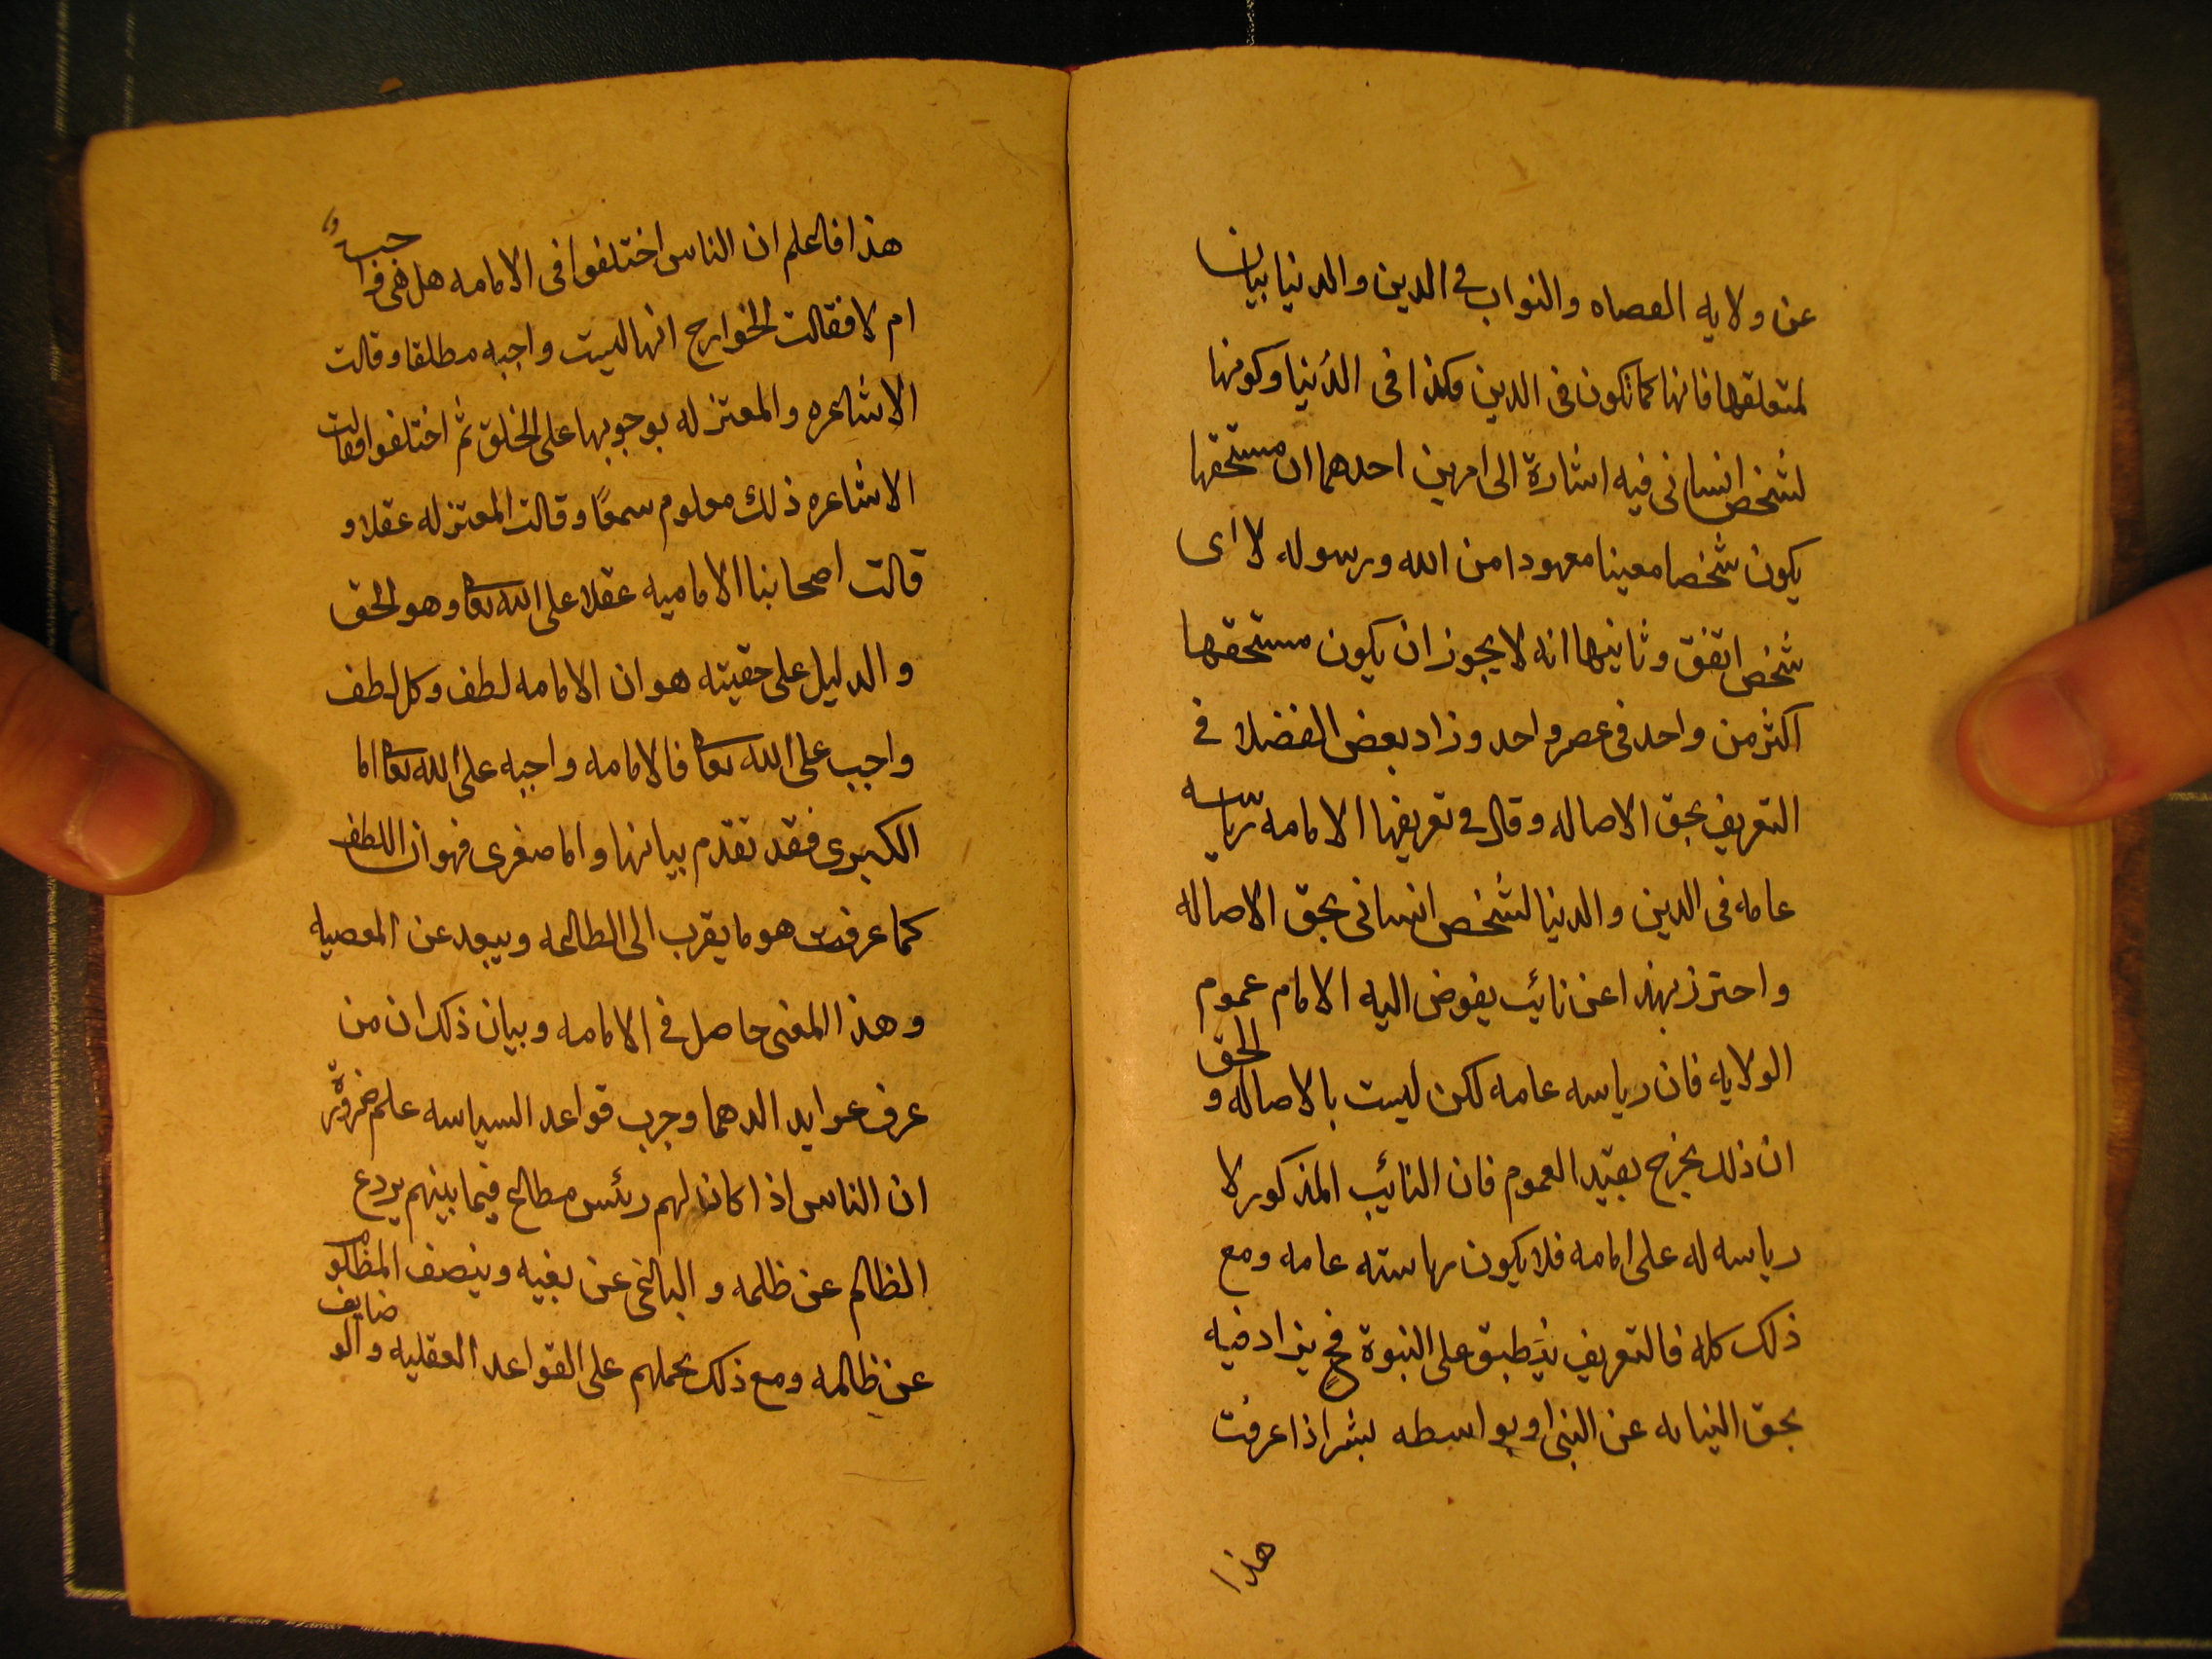 عن ولايه العصاه والنواب في الدين والدنيا بيان
لمتعلقها فانها كما تكون في الدين فكذا في الدنيا وكونها
لشخص انساني فيه اشارة الى امرين احدهما ان مستحقها
يكون شخصا معينا معهودا من الله ورسوله لا اى
شخص اتفق وثانيهما انه لا يجوز ان يكون مستحقها
اكثر من واحد في عصر واحد وزاد بعض الفضلا في
التعريف بحق الاصاله وقال في تعريفها الامامه رياسه
عامه في الدين والدنيا لشخص انساني بحق الاصاله
واحترز بهذا عن نائب يفوض اليه الامام عموم
الولايه فان رياسه عامه لكن ليست بالاصاله والحق
ان ذلك يخرج بقيد العموم فان النائب المذكور لا
رياسه له على امامه فلا يكون رياسته عامه ومع
ذلك كله فالتعريف ينطبق على النبوة فح يزاد فيه
بحق النيابه عن النبي او بواسطه بشر اذا عرفت
هذا
هذا فاعلم ان الناس اختلفوا في الامامه هل هي واجب
ام لا فقالت الخوارج انها ليست واجبه مطلقا وقالت
الاشاعره والمعتزله بوجوبها على الخلق ثم اختلفوا فقالت
الاشاعره ذلك معلوم سمعًا وقالت المعتزله عقلا و
قالت اصحابنا الاماميه عقلا على الله تعا وهو الحق
والدليل على حقيته هو ان الامامه لطف وكل لطف
واجب على الله تعا فالامامه واجبه على الله تعا اما
الكبرى فقد تقدم بيانها واما صغرى فهو ان اللطف
كما عرفت هو ما يقرب الى الطاعه ويبعد عن المعصيه
وهذا المعنى حاصل في الامامه وبيان ذلك ان من
عرف عوايد الدهما وجرب قواعد السياسه علم ضرورة
ان الناس اذا كان لهم رئس مطاع فيما بينهم يردع
الظالم عن ظلمه والباغى عن بغيه وينصف المظلوم
عن ظالمه ومع ذلك يحملهم على القواعد العقليه والوضايف